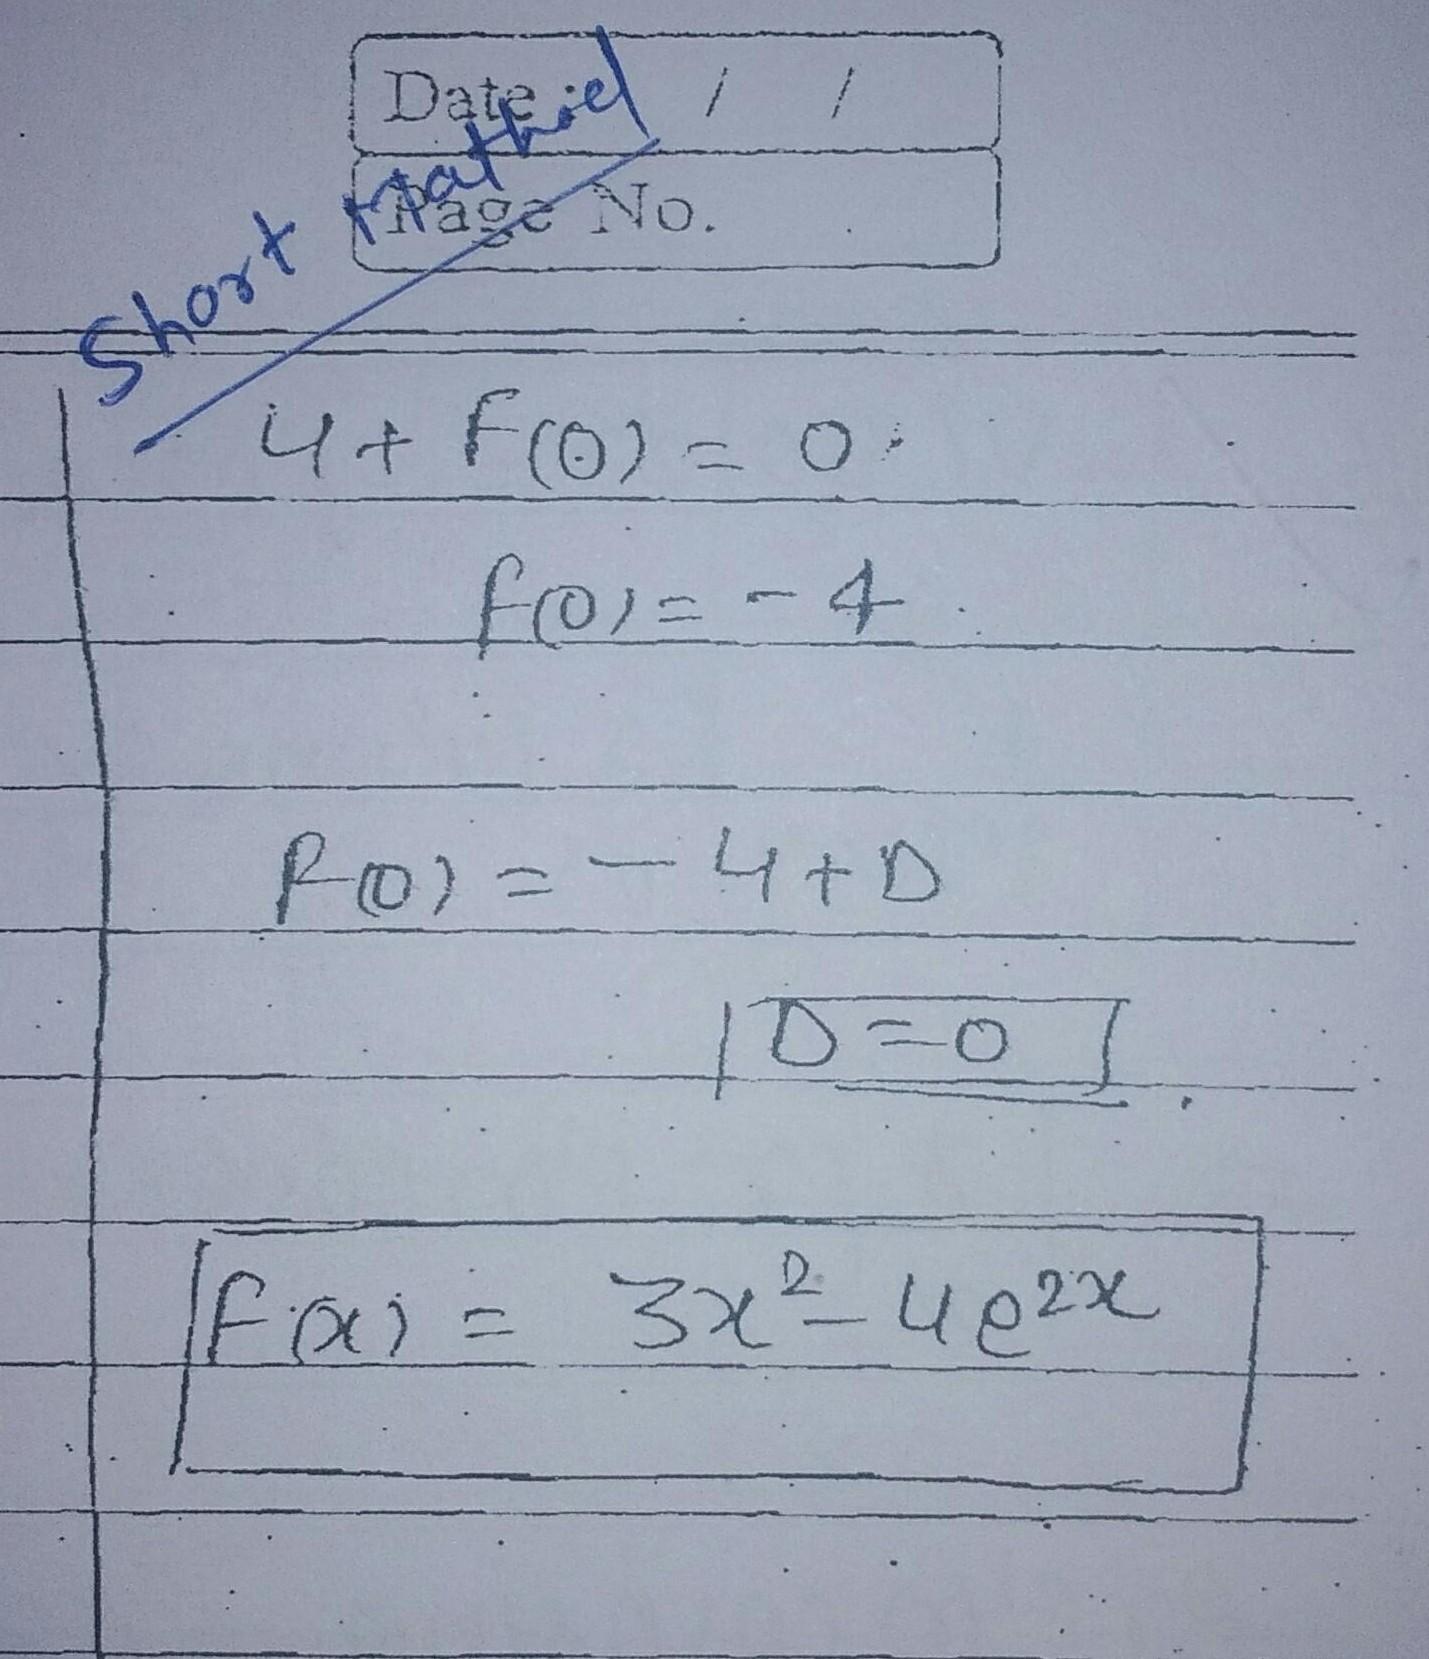 Date / /
Page No.
Short Mathod
4 + f(0) = 0
f(0) = -4
f(0) = -4 + D
D = 0
f(x) = 3x² - 4e²ˣ